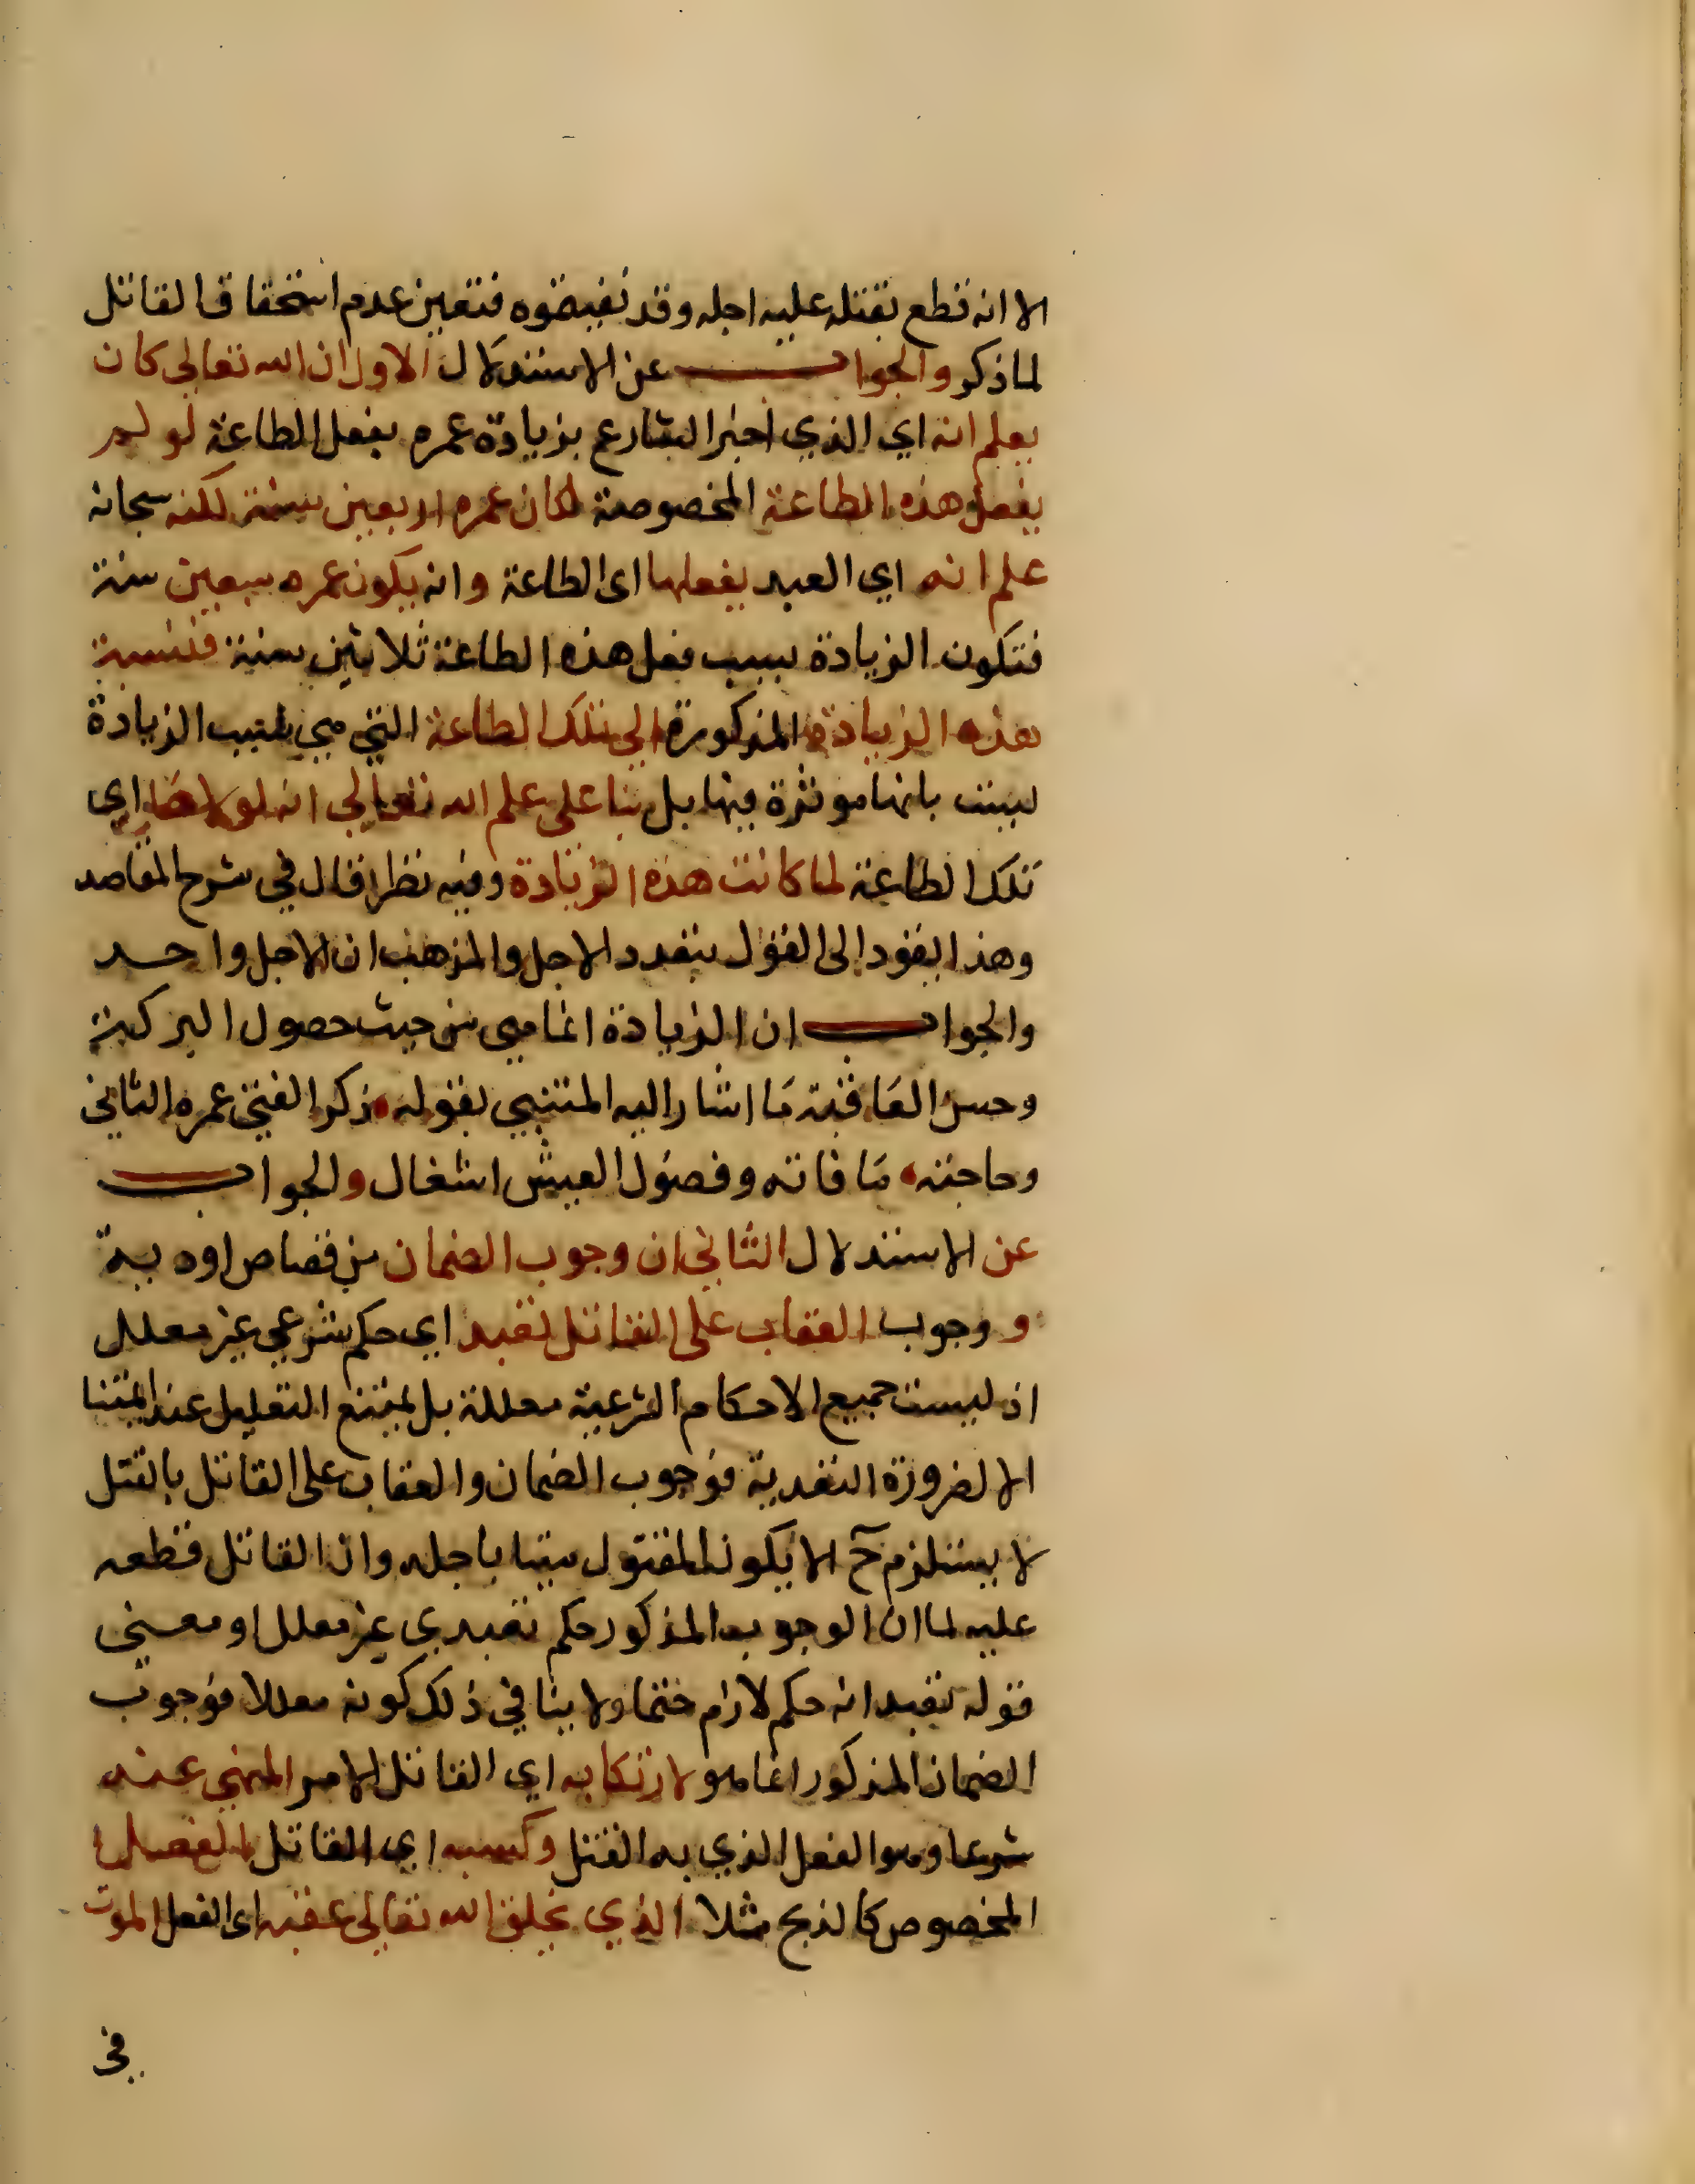 الا انه قطع بقتله عليه اجله وقد نفيتموه فتعين عدم استحقاق القاتل
لما ذكر والجواب عن الاستدلال الاول ان الله تعالى كان
يعلم انه اي الذي اخبر الشارع بزيادة عمره بفعل الطاعة لو لم
يفعل هذه الطاعة المخصوصة لكان عمره اربعين سنة لكنه سبحانه
علم انه اي العبد يفعلها اى الطاعة وانه يكون عمره سبعين سنة
فتكون الزيادة بسبب فعل هذه الطاعة ثلاثين سنة فنسبة
هذه الزيادة المذكورة الى تلك الطاعة التي هي سبب الزيادة
ليست بانها موثرة فيها بل بنا على علم الله تعالى انه لولاها اي
تلك الطاعة لما كانت هذه الزيادة وفيه نظر قال في شرح المقاصد
وهذا يقود الى القول بتعدد الاجل والمذهب ان الاجل واحد
والجواب ان الزيادة انما هي من حيث حصول البركة
وحسن العاقبة ما اشار اليه المتنبي بقوله ذكر الفتى عمره الثاني
وحاجته ما فاته وفضول العيش اشغال والجواب
عن الاستدلال الثاني ان وجوب الضمان من قصاص او دية
و وجوب العقاب على القاتل تعبد اي حكم شرعي غير معلل
اذ ليست جميع الاحكام الشرعية معللة بل يمتنع التعليل عند ايمتنا
الا لضرورة التعدية فوجوب الضمان والعقاب على القاتل بالقتل
لا يستلزم ح الا يكون المقتول ميتا باجله وان القاتل قطعه
عليه لما ان الوجوب المذكور حكم تعبدي غير معلل او معنى
قوله تعبد انه حكم لازم حتما ولا ينافي ذلك كونه معللا فوجوب
الضمان المذكور انما هو لارتكابه اي القاتل الامر المنهي عنه
شرعا وهو الفعل الذي به القتل وكسبه اي القاتل الفعل
المخصوص كالذبح مثلا الذي يخلق الله تعالى عقبه اى الفعل الموت
في